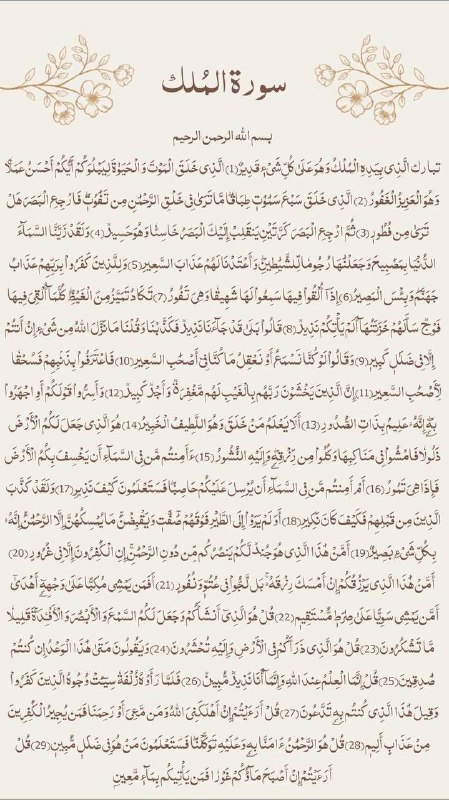 سورة الملك
بسم الله الرحمن الرحيم
تبارك الَّذِي بِيَدِهِ الْمُلْكُ وَهُوَ عَلَىٰ كُلِّ شَيْءٍ قَدِيرٌ (1) الَّذِي خَلَقَ الْمَوْتَ وَالْحَيَاةَ لِيَبْلُوَكُمْ أَيُّكُمْ أَحْسَنُ عَمَلًا
وَهُوَ الْعَزِيزُ الْغَفُورُ (2) الَّذِي خَلَقَ سَبْعَ سَمَٰوَٰتٍ طِبَاقًا مَّا تَرَىٰ فِي خَلْقِ الرَّحْمَٰنِ مِن تَفَٰوُتٍ فَارْجِعِ الْبَصَرَ هَلْ
تَرَىٰ مِن فُطُورٍ (3) ثُمَّ ارْجِعِ الْبَصَرَ كَرَّتَيْنِ يَنقَلِبْ إِلَيْكَ الْبَصَرُ خَاسِئًا وَهُوَ حَسِيرٌ (4) وَلَقَدْ زَيَّنَّا السَّمَآءَ
الدُّنْيَا بِمَصَٰبِيحَ وَجَعَلْنَٰهَا رُجُومًا لِّلشَّيَٰطِينِ وَأَعْتَدْنَا لَهُمْ عَذَابَ السَّعِيرِ (5) وَلِلَّذِينَ كَفَرُوا بِرَبِّهِمْ عَذَابُ
جَهَنَّمَ وَبِئْسَ الْمَصِيرُ (6) إِذَآ أُلْقُوا فِيهَا سَمِعُوا لَهَا شَهِيقًا وَهِيَ تَفُورُ (7) تَكَادُ تَمَيَّزُ مِنَ الْغَيْظِ كُلَّمَآ أُلْقِيَ فِيهَا
فَوْجٌ سَأَلَهُمْ خَزَنَتُهَآ أَلَمْ يَأْتِكُمْ نَذِيرٌ (8) قَالُوا بَلَىٰ قَدْ جَآءَنَا نَذِيرٌ فَكَذَّبْنَا وَقُلْنَا مَا نَزَّلَ اللَّهُ مِن شَيْءٍ إِنْ أَنتُمْ
إِلَّا فِي ضَلَٰلٍ كَبِيرٍ (9) وَقَالُوا لَوْ كُنَّا نَسْمَعُ أَوْ نَعْقِلُ مَا كُنَّا فِي أَصْحَٰبِ السَّعِيرِ (10) فَاعْتَرَفُوا بِذَنبِهِمْ فَسُحْقًا
لِّأَصْحَٰبِ السَّعِيرِ (11) إِنَّ الَّذِينَ يَخْشَوْنَ رَبَّهُم بِالْغَيْبِ لَهُم مَّغْفِرَةٌ وَأَجْرٌ كَبِيرٌ (12) وَأَسِرُّوا قَوْلَكُمْ أَوِ اجْهَرُوا
بِهِ إِنَّهُ عَلِيمٌ بِذَاتِ الصُّدُورِ (13) أَلَا يَعْلَمُ مَنْ خَلَقَ وَهُوَ اللَّطِيفُ الْخَبِيرُ (14) هُوَ الَّذِي جَعَلَ لَكُمُ الْأَرْضَ
ذَلُولًا فَامْشُوا فِي مَنَاكِبِهَا وَكُلُوا مِن رِّزْقِهِ وَإِلَيْهِ النُّشُورُ (15) ءَأَمِنتُم مَّن فِي السَّمَآءِ أَن يَخْسِفَ بِكُمُ الْأَرْضَ
فَإِذَا هِيَ تَمُورُ (16) أَمْ أَمِنتُم مَّن فِي السَّمَآءِ أَن يُرْسِلَ عَلَيْكُمْ حَاصِبًا فَسَتَعْلَمُونَ كَيْفَ نَذِيرِ (17) وَلَقَدْ كَذَّبَ
الَّذِينَ مِن قَبْلِهِمْ فَكَيْفَ كَانَ نَكِيرِ (18) أَوَلَمْ يَرَوْا إِلَى الطَّيْرِ فَوْقَهُمْ صَٰٓفَّٰتٍ وَيَقْبِضْنَ مَا يُمْسِكُهُنَّ إِلَّا الرَّحْمَٰنُ إِنَّهُ
بِكُلِّ شَيْءٍ بَصِيرٌ (19) أَمَّنْ هَٰذَا الَّذِي هُوَ جُندٌ لَّكُمْ يَنصُرُكُم مِّن دُونِ الرَّحْمَٰنِ إِنِ الْكَٰفِرُونَ إِلَّا فِي غُرُورٍ (20)
أَمَّنْ هَٰذَا الَّذِي يَرْزُقُكُمْ إِنْ أَمْسَكَ رِزْقَهُ بَل لَّجُّوا فِي عُتُوٍّ وَنُفُورٍ (21) أَفَمَن يَمْشِي مُكِبًّا عَلَىٰ وَجْهِهِ أَهْدَىٰٓ
أَمَّن يَمْشِي سَوِيًّا عَلَىٰ صِرَٰطٍ مُّسْتَقِيمٍ (22) قُلْ هُوَ الَّذِيٓ أَنشَأَكُمْ وَجَعَلَ لَكُمُ السَّمْعَ وَالْأَبْصَٰرَ وَالْأَفْئِدَةَ قَلِيلًا
مَّا تَشْكُرُونَ (23) قُلْ هُوَ الَّذِي ذَرَأَكُمْ فِي الْأَرْضِ وَإِلَيْهِ تُحْشَرُونَ (24) وَيَقُولُونَ مَتَىٰ هَٰذَا الْوَعْدُ إِن كُنتُمْ
صَٰدِقِينَ (25) قُلْ إِنَّمَا الْعِلْمُ عِندَ اللَّهِ وَإِنَّمَآ أَنَا نَذِيرٌ مُّبِينٌ (26) فَلَمَّا رَأَوْهُ زُلْفَةً سِيٓـَٔتْ وُجُوهُ الَّذِينَ كَفَرُوا
وَقِيلَ هَٰذَا الَّذِي كُنتُم بِهِ تَدَّعُونَ (27) قُلْ أَرَءَيْتُمْ إِنْ أَهْلَكَنِيَ اللَّهُ وَمَن مَّعِيَ أَوْ رَحِمَنَا فَمَن يُجِيرُ الْكَٰفِرِينَ
مِنْ عَذَابٍ أَلِيمٍ (28) قُلْ هُوَ الرَّحْمَٰنُ ءَامَنَّا بِهِ وَعَلَيْهِ تَوَكَّلْنَا فَسَتَعْلَمُونَ مَنْ هُوَ فِي ضَلَٰلٍ مُّبِينٍ (29) قُلْ
أَرَءَيْتُمْ إِنْ أَصْبَحَ مَآؤُكُمْ غَوْرًا فَمَن يَأْتِيكُم بِمَآءٍ مَّعِينٍ